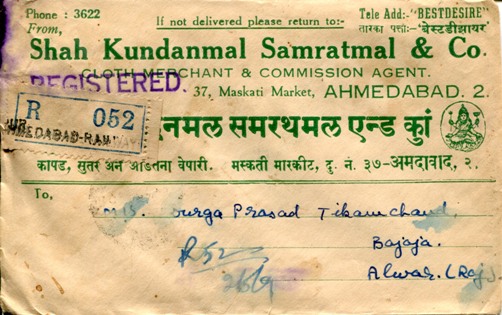 Phone : 3622
If not delivered please return to:-
Tele Add:-"BESTDESIRE"
From,
तारका पत्ता:- "बेस्टडीझायर"
Shah Kundanmal Samratmal & Co.
CLOTH MERCHANT & COMMISSION AGENT.
REGISTERED.
37, Maskati Market, AHMEDABAD. 2.
R 052
AHMEDABAD-RAILWAY
नमल समरथमल एन्ड कुां
कापड, सुतर अने आडतना वेपारी. मस्कती मारकीट, दु. नं. ३७-अमदावाद, २.
To,
M/S. Durga Prasad Tikamchand.
R52
Bajaja.
Alwar. (Raj)